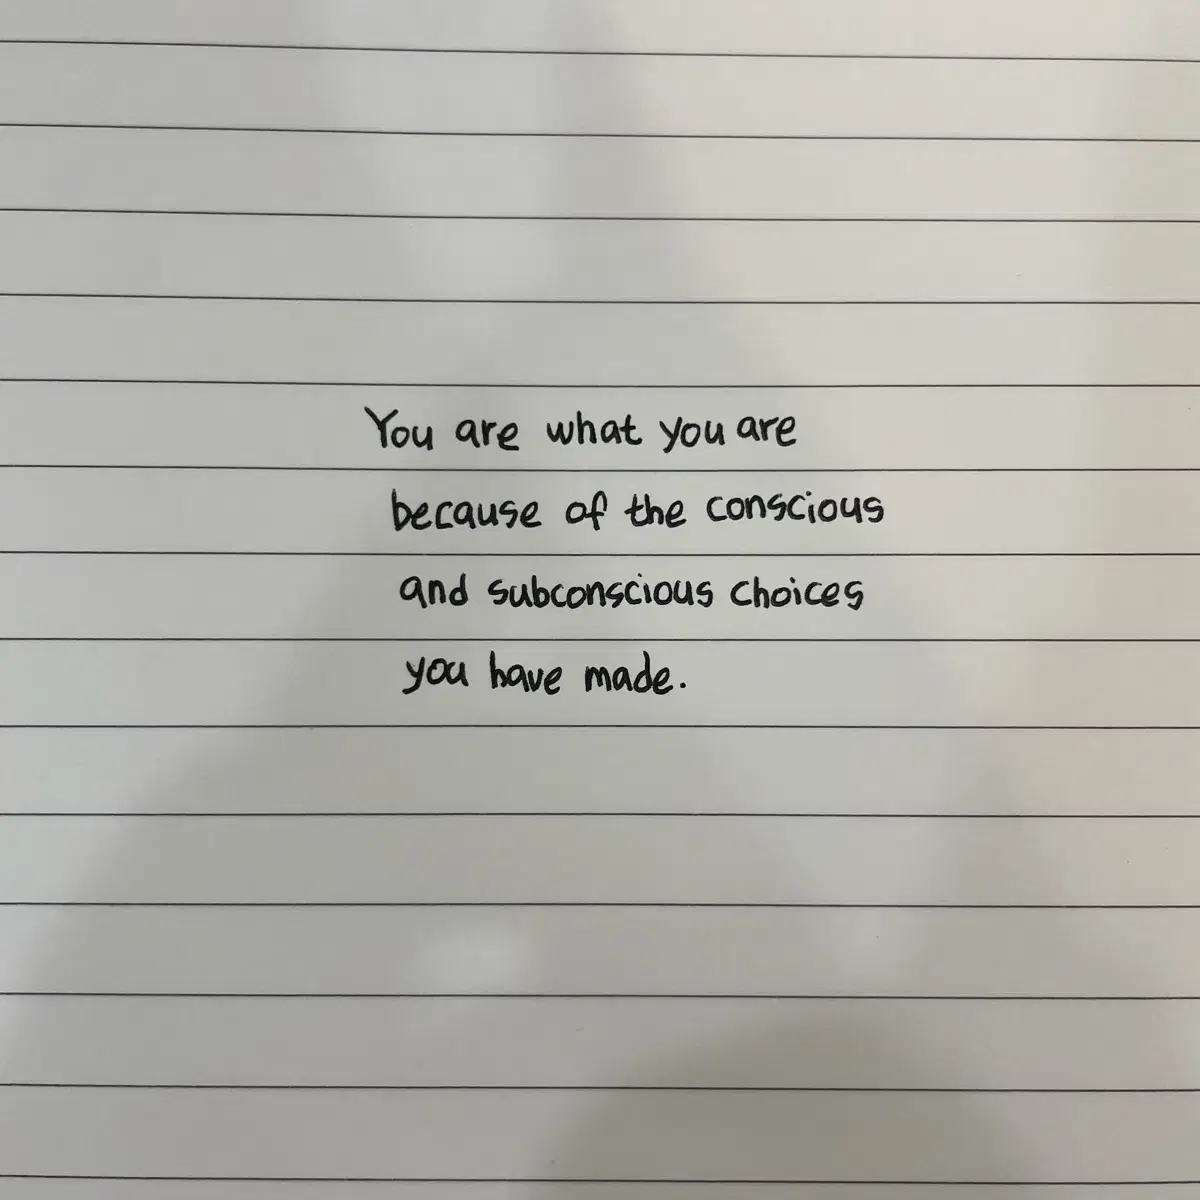 You are what you are
because of the conscious
and subconscious choices
you have made.